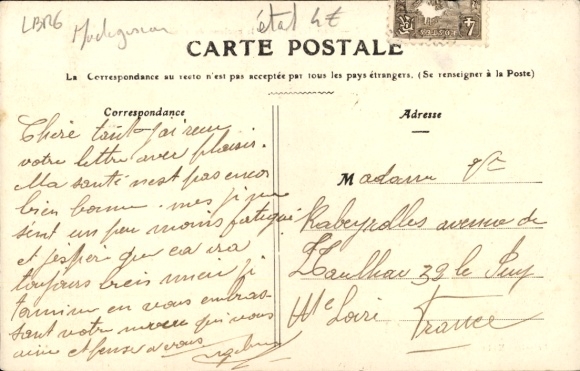 LBR6
Madagascar
état 4 €
POSTES
CARTE POSTALE
La Correspondance au recto n'est pas acceptée par tous les pays étrangers. (Se renseigner à la Poste)
Correspondance
Chère tante j'ai reçu
votre lettre avec plaisir.
Ma santé n'est pas encor
bien bonne. mes je me
sent un peu moins fatigué
et j'esper que ca ira
toujours bien mieu je
termine en vous embras-
sant votre neveu qui vous
aime et pense a vous
Adresse
Madame Vve
Rabeyrolles avenue de
39 le Puy
Hte Loire
France